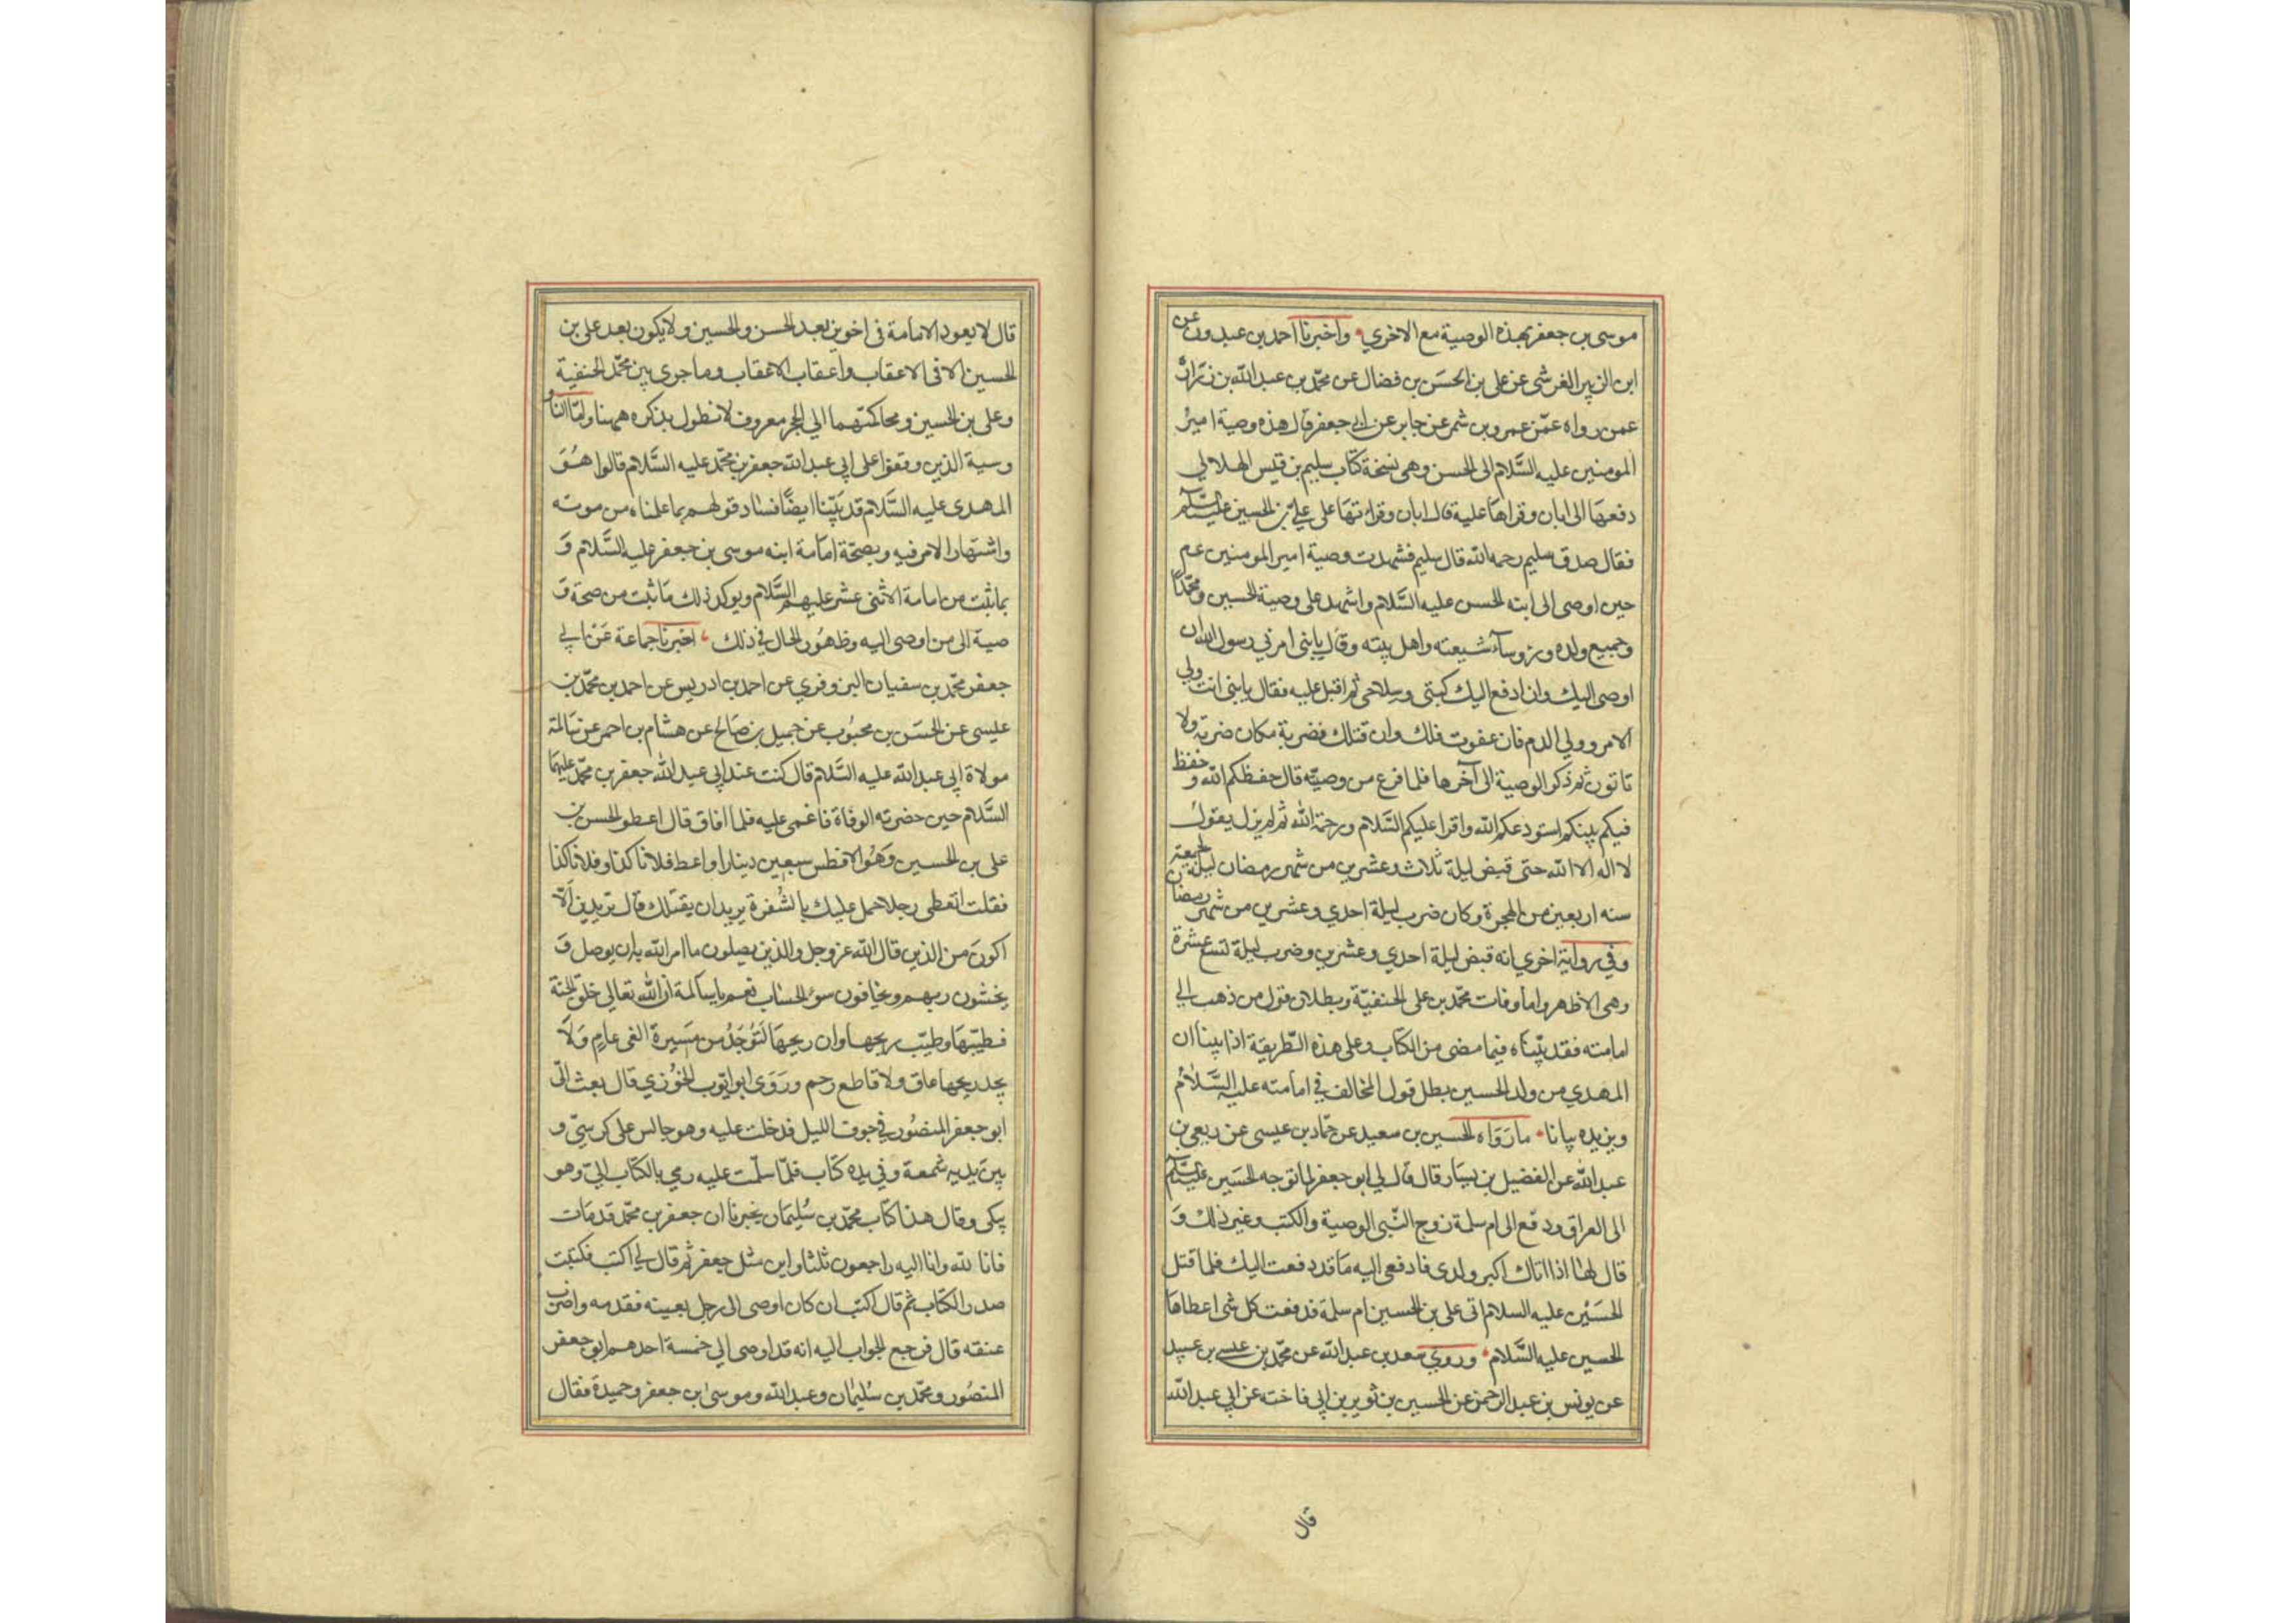 موسى بن جعفر بهذه الوصية مع الاخري واخبرنا احمد بن عبدون عن
ابن الزبير القرشى عن على بن الحسن بن فضال عن محمد بن عبد الله بن زرارة
عمن رواه عمن عمرو بن شمر عن جابر عن ابى جعفر قال هذه وصية امير
المومنين عليه السلام الى الحسن وهى نسخة كتاب سليم بن قيس الهلالي
دفعها الى ابان وقراها عليه قال ابان وقراتها على علي بن الحسين عليه السلام
فقال صدق سليم رحمه الله قال سليم فشهدت وصية امير المومنين عم
حين اوصى الى ابنه الحسن عليه السلام واشهد على وصية الحسين ومحمدا
وجميع ولده ورؤساء شيعته واهل بيته وقال يا بنى امرني رسول الله ان
اوصى اليك وان ادفع اليك كبتى وسلاحى ثم اقبل عليه فقال يا بنى انت ولي
الامر وولي الدم فان عفوت فلك وان قتلت فضربة مكان ضربة ولا
تاتون ثم ذكر الوصية الى آخرها فلما فرع من وصيته قال حفظكم الله وحفظ
فيكم بينكم استودعكم الله واقرا عليكم السلام ورحمة الله ثم لم يزل يقول
لا اله الا الله حتى قبض ليلة ثلاث وعشرين من شهر رمضان ليلة الجمعة
سنه اربعين من الهجرة وكان ضرب ليلة احدي وعشرين من شهر رمضان
وفي رواية اخري انه قبض ليلة احدي وعشرين وضرب ليلة لتسع عشرة
وهى الاظهر واما وفات محمد بن على الحنفية وبطلان قول من ذهب الي
امامته فقد بيناه فيما مضى من الكتاب وعلى هذه الطريقة اذا بينا ان
المهدي من ولد الحسين بطل قول المخالف في امامته عليه السلام
ويزيده بيانا ما رواه الحسين بن سعيد عن حماد بن عيسى عن ربعى بن
عبد الله عن الفضيل بن يسار قال قال لي ابو جعفر لما توجه الحسين عليه السلام
الى العراق ودفع الى ام سلمة زوج النبى الوصية والكتب وغير ذلك و
قال لها اذا اتاك اكبر ولدى فادفعى اليه ما قد دفعت اليك فلما قتل
الحسين عليه السلام اتى على بن الحسين ام سلمة فدفعت كل شى اعطاها
الحسين عليه السلام وروي سعد بن عبد الله عن محمد بن عيسى بن عبيد
عن يونس بن عبد الرحمن عن الحسين بن ثوير بن ابى فاخته عن ابى عبد الله
قال
قال لا يعود الامامة فى اخوين بعد الحسن والحسين ولا يكون بعد على بن
الحسين الا فى الاعقاب واعقاب الاعقاب وما جرى بين محمد الحنفية
وعلى بن الحسين ومحاكمتهما الي الحجر معروف لا نطول بذكره ههنا واما الناو
وسية الذين وقفوا على ابى عبد الله جعفر بن محمد عليه السلام قالوا هو
المهدى عليه السلام قد بينا ايضا فساد قولهم بما علمناه من موته
واشتهار الامر فيه وبصحة امامة ابنه موسى بن جعفر عليه السلام و
بما ثبت من امامة الاثنى عشر عليهم السلام ويوكد ذلك ما ثبت من صحة و
صية الى من اوصى اليه وظهور الحال في ذلك اخبرنا جماعة عن ابى
جعفر محمد بن سفيان البزوفري عن احمد بن ادريس عن احمد بن محمد بن
عيسى عن الحسن بن محبوب عن جميل بن صالح عن هشام بن احمر عن سالمة
مولاة ابى عبد الله عليه السلام قال كنت عند ابى عبد الله جعفر بن محمد عليهما
السلام حين حضرته الوفاة فاغمى عليه فلما افاق قال اعطو الحسن بن
على بن الحسين وهو الافطس سبعين دينارا واعط فلانا كذا وفلانا كذا
فقلت اتعطى رجلا حمل عليك بالشفرة يريد ان يقتلك قال تريدين الا
اكون من الذين قال الله عز وجل والذين يصلون ما امر الله به ان يوصل و
يخشون ربهم ويخافون سوء الحساب نعم يا سالمة ان الله تعالى خلق الجنة
فطيبها وطيب ريحها وان ريحها لتوجد من مسيرة الفى عام ولا
يجد ريحها عاق ولا قاطع رحم وروى ابو ايوب الخوزي قال بعث الى
ابو جعفر المنصور في جوف الليل فدخلت عليه وهو جالس على كرسى و
بين يديه شمعة وفي يده كتاب فلما سلمت عليه رمي بالكتاب الى وهو
يبكى وقال هذا كتاب محمد بن سليمان يخبرنا ان جعفر بن محمد قد مات
فانا لله وانا اليه راجعون ثلثا واين مثل جعفر ثم قال لي اكتب فكتبت
صدر الكتاب ثم قال اكتب ان كان اوصى الى رجل بعينه فقدمه واضرب
عنقه قال فرجع الجواب اليه انه قد اوصى الي خمسة احدهم ابو جعفر
المنصور ومحمد بن سليمان وعبد الله وموسى ابن جعفر وحميدة فقال